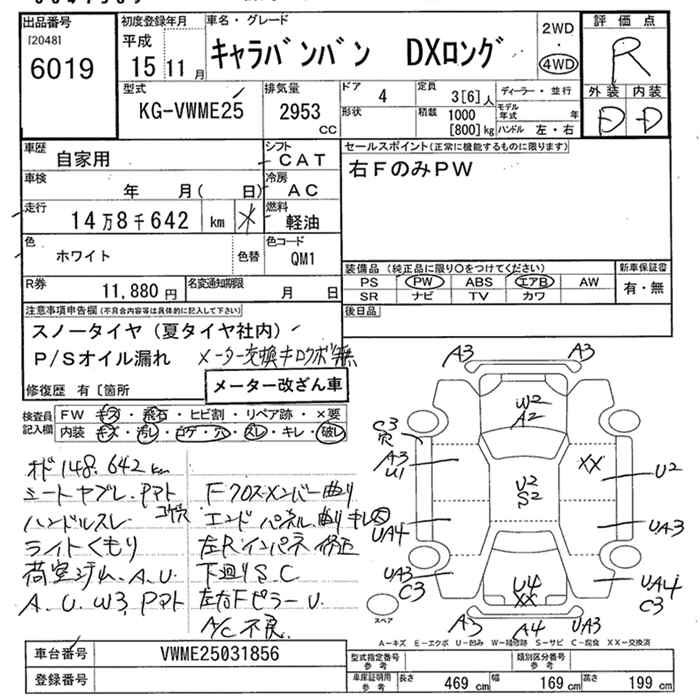 出品番号
[2048]
6019
初度登録年月
平成
15 11月
車名・グレード
キャラバンバン DXロング
2WD
4WD
評価点
R
外装 内装
D D
型式
KG-VWME25
排気量
2953 cc
ドア 4
形状
定員 3[6]人
積載 1000 [800]kg
ディーラー・並行
モデル年式 年
ハンドル 左・右
車歴
自家用
シフト
CAT
車検
年 月( 日)
冷房
AC
走行
14万8千642 km ✳
燃料
軽油
色
ホワイト
色替
色コード
QM1
R券
11,880 円
名変通知期限
月 日
セールスポイント(正常に機能するものに限ります)
右FのみPW
装備品(純正品に限り○をつけてください)
PS PW ABS エアB AW
SR ナビ TV カワ
新車保証書
有・無
後日品
注意事項申告欄(不具合内容等は具体的に記入して下さい)
スノータイヤ(夏タイヤ社内)
P/Sオイル漏れ メーター交換キロクボ無
修復歴 有[箇所
メーター改ざん車
検査員記入欄
FW キズ・飛石・ヒビ割・リペア跡・×要
内装 キズ・汚レ・コゲ・穴・スレ・キレ・破レ
オド148.642km
シートヤブレ.Pマト
コゲ穴
ハンドルスレ
ライトくもり
荷室ジム.A.U.
A.U.W3.Pマト
Fクロスメンバー曲り
エンドパネル曲りキレ大
左Rインパネ修正
下廻りS.C
左右Fピラー U.
A/C不良
A3
A3
W2
A2
C3
穴
A3
U1
XX
U2
U2
S2
UA4
UA3
UA3
C3
U4
XX
UA4
C3
A3
A4
UA3
スペア
A-キズ E-エクボ U-凹み W-補修跡 S-サビ C-腐食 XX-交換済
車台番号
VWME25031856
登録番号
型式指定番号 参考
類別区分番号 参考
車庫証明用 参考
長さ 469 cm
幅 169 cm
高さ 199 cm